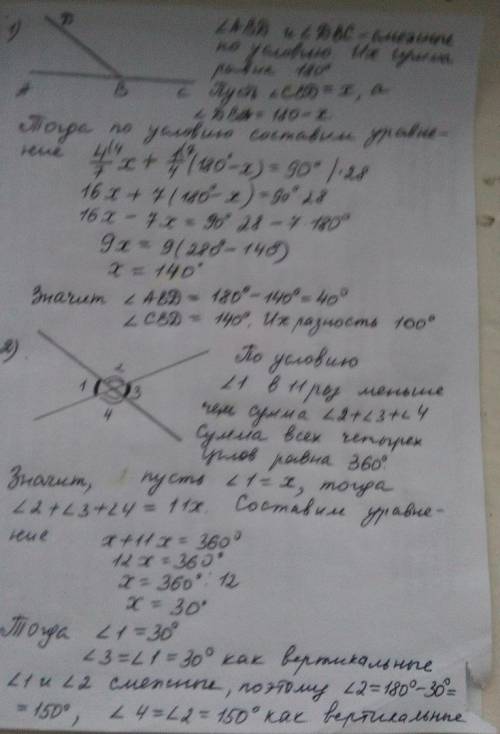 1)
D
A B C
∠ABD и ∠DBC - смежные
по условию. Их сумма
равна 180°
Пусть ∠CBD = x, а
∠DBA = 180 - x
Тогда по условию составим уравне-
ние 4/7 x + 1/4 (180° - x) = 90° | · 28
16x + 7(180° - x) = 90° · 28
16x - 7x = 90° · 28 - 7 · 180°
9x = 9(280° - 140°)
x = 140°
Значит ∠ABD = 180° - 140° = 40°
∠CBD = 140°. Их разность 100°
2)
1 2 3 4
По условию
∠1 в 11 раз меньше
чем сумма ∠2+∠3+∠4
Сумма всех четырех
углов равна 360°.
Значит, пусть ∠1 = x, тогда
∠2+∠3+∠4 = 11x. Составим уравне-
ние x + 11x = 360°
12x = 360°
x = 360° : 12
x = 30°
Тогда ∠1 = 30°
∠3 = ∠1 = 30° как вертикальные
∠1 и ∠2 смежные, поэтому ∠2 = 180° - 30° =
= 150°, ∠4 = ∠2 = 150° как вертикальные